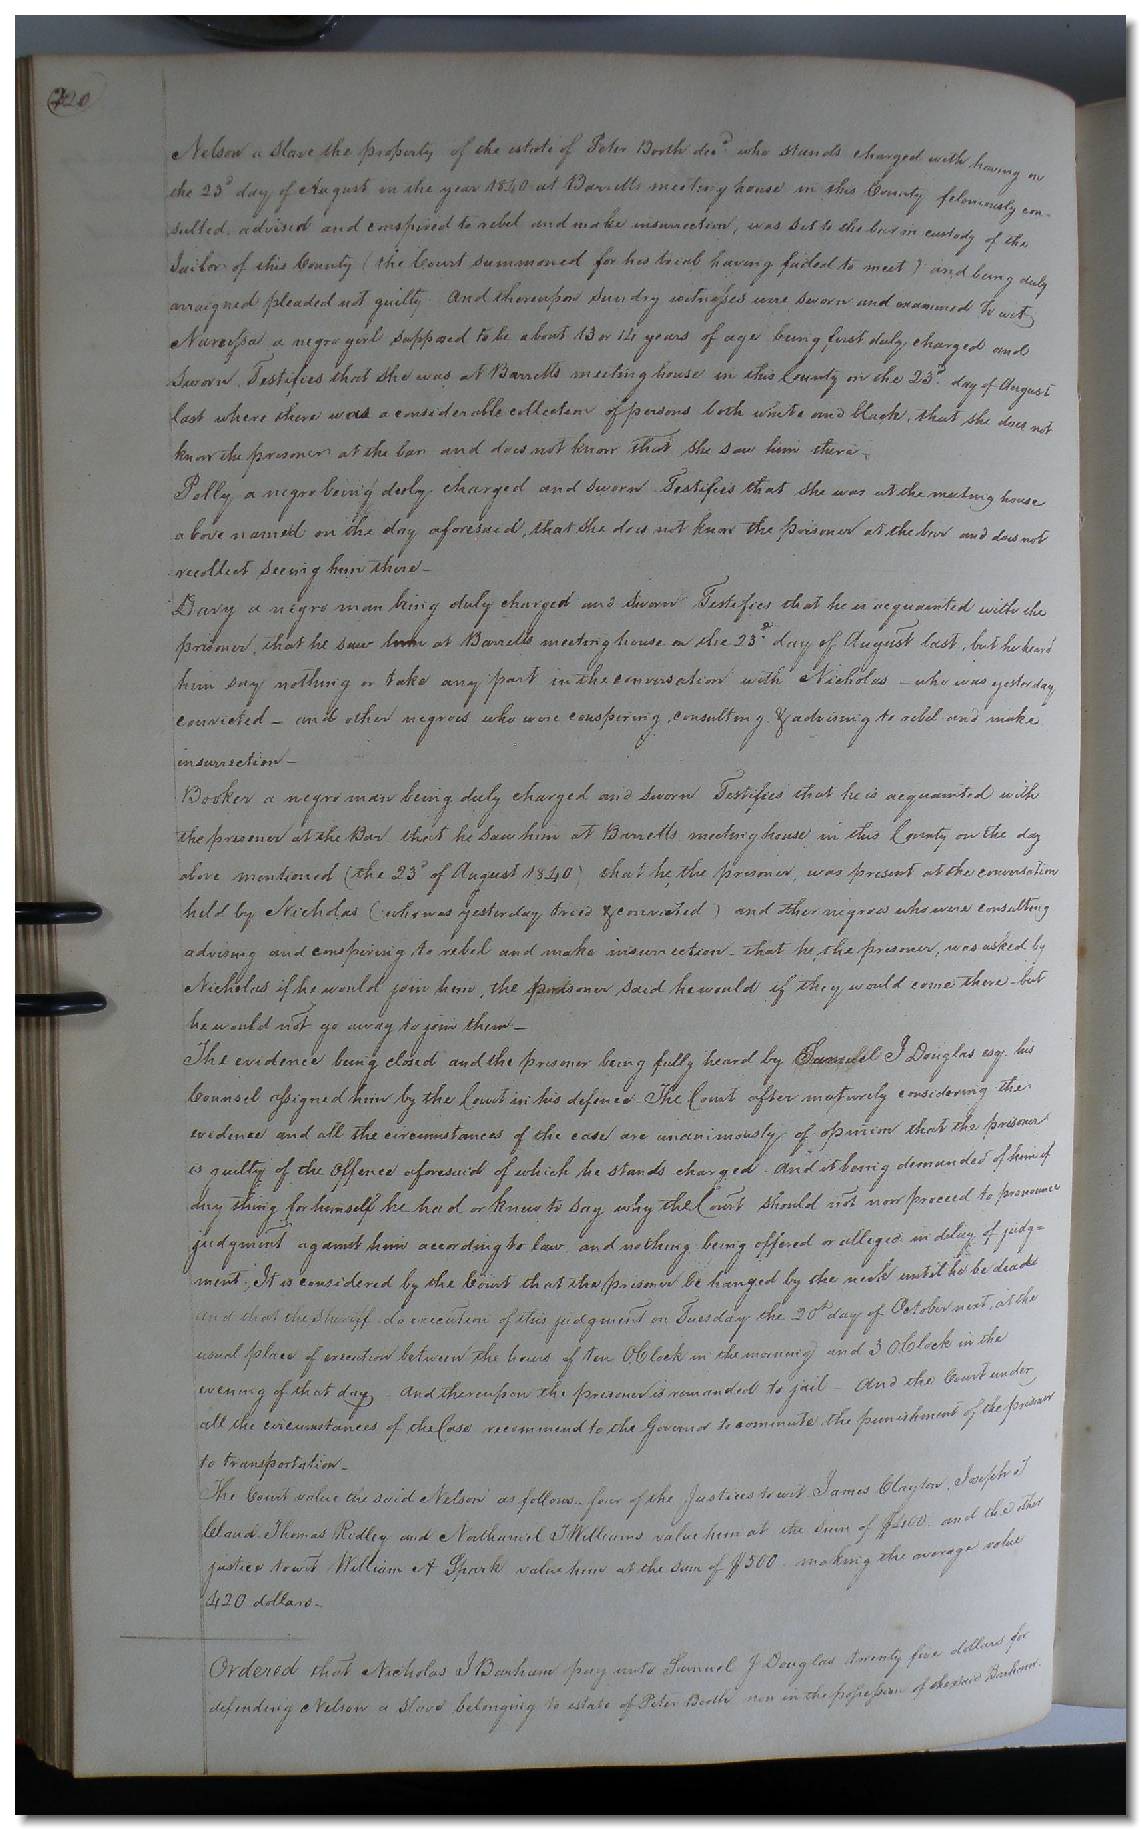 720
Nelson a slave the property of the estate of Peter Booth decd. who stands charged with having on
the 23d day of August in the year 1840 at Barretts meeting house in this County feloniously con-
sulted, advised and conspired to rebel and make insurrection, was set to the bar in custody of the
Jailor of this County (the Court summoned for his trial having failed to meet) and being duly
arraigned pleaded not guilty. And thereupon sundry witnesses were sworn and examined to wit;
Narcissa a negro girl supposed to be about 13 or 14 years of age being first duly charged and
sworn, Testifies that she was at Barretts meeting house in this County on the 23d. day of August
last where there was a considerable collection of persons both white and black, that she does not
know the prisoner at the bar and does not know that she saw him there.
Polly a negro being duly charged and sworn Testifies that she was at the meeting house
above named on the day aforesaid, that she does not know the prisoner at the bar and does not
recollect seeing him there-
Davy a negro man being duly charged and sworn Testifies that he is acquainted with the
prisoner, that he saw him at Barretts meeting house on the 23d. day of August last, but he heard
him say nothing or take any part in the conversation with Nicholas - who was yesterday
convicted - and other negroes who were conspiring, consulting & advising to rebel and make
insurrection-
Booker a negro man being duly charged and sworn Testifies that he is acquainted with
the prisoner at the Bar that he saw him at Barretts meeting house in this County on the day
above mentioned (the 23d of August 1840) that he, the prisoner, was present at the conversation
held by Nicholas (who was yesterday tried & convicted) and other negroes who were consulting
advising and conspiring to rebel and make insurrection - that he, the prisoner, was asked by
Nicholas if he would join him, the prisoner said he would if they would come there - but
he would not go away to join them-
The evidence being closed and the prisoner being fully heard by Samuel J Douglas esq. his
Counsel assigned him by the Court in his defence The Court after maturely considering the
evidence and all the circumstances of the case are unanimously of opinion that the prisoner
is guilty of the Offence aforesaid of which he stands charged. And it being demanded of him if
any thing for himself he had or knew to say why the Court should not now proceed to pronounce
judgment against him according to law and nothing being offered or alleged in delay of judg=
ment; It is considered by the Court that the prisoner be hanged by the neck until he be dead
and that the Sheriff do execution of this judgment on Tuesday the 20th day of October next, at the
usual place of execution between the hours of ten OClock in the morning and 3 OClock in the
evening of that day. And thereupon the prisoner is remanded to jail - And the Court under
all the circumstances of the Case recommend to the Governor to commute the punishment of the prisoner
to transportation-
The Court value the said Nelson as follows. four of the Justices to wit James Clayton, Joseph T
Claud Thomas Ridley and Nathaniel T Williams value him at the sum of $400. and the other
justice to wit William A Spark value him at the sum of $500 making the average value
420 dollars-
Ordered that Nicholas J Barham pay unto Samuel J Douglas twenty five dollars for
defending Nelson a slave belonging to estate of Peter Booth now in the possession of the said Barham.